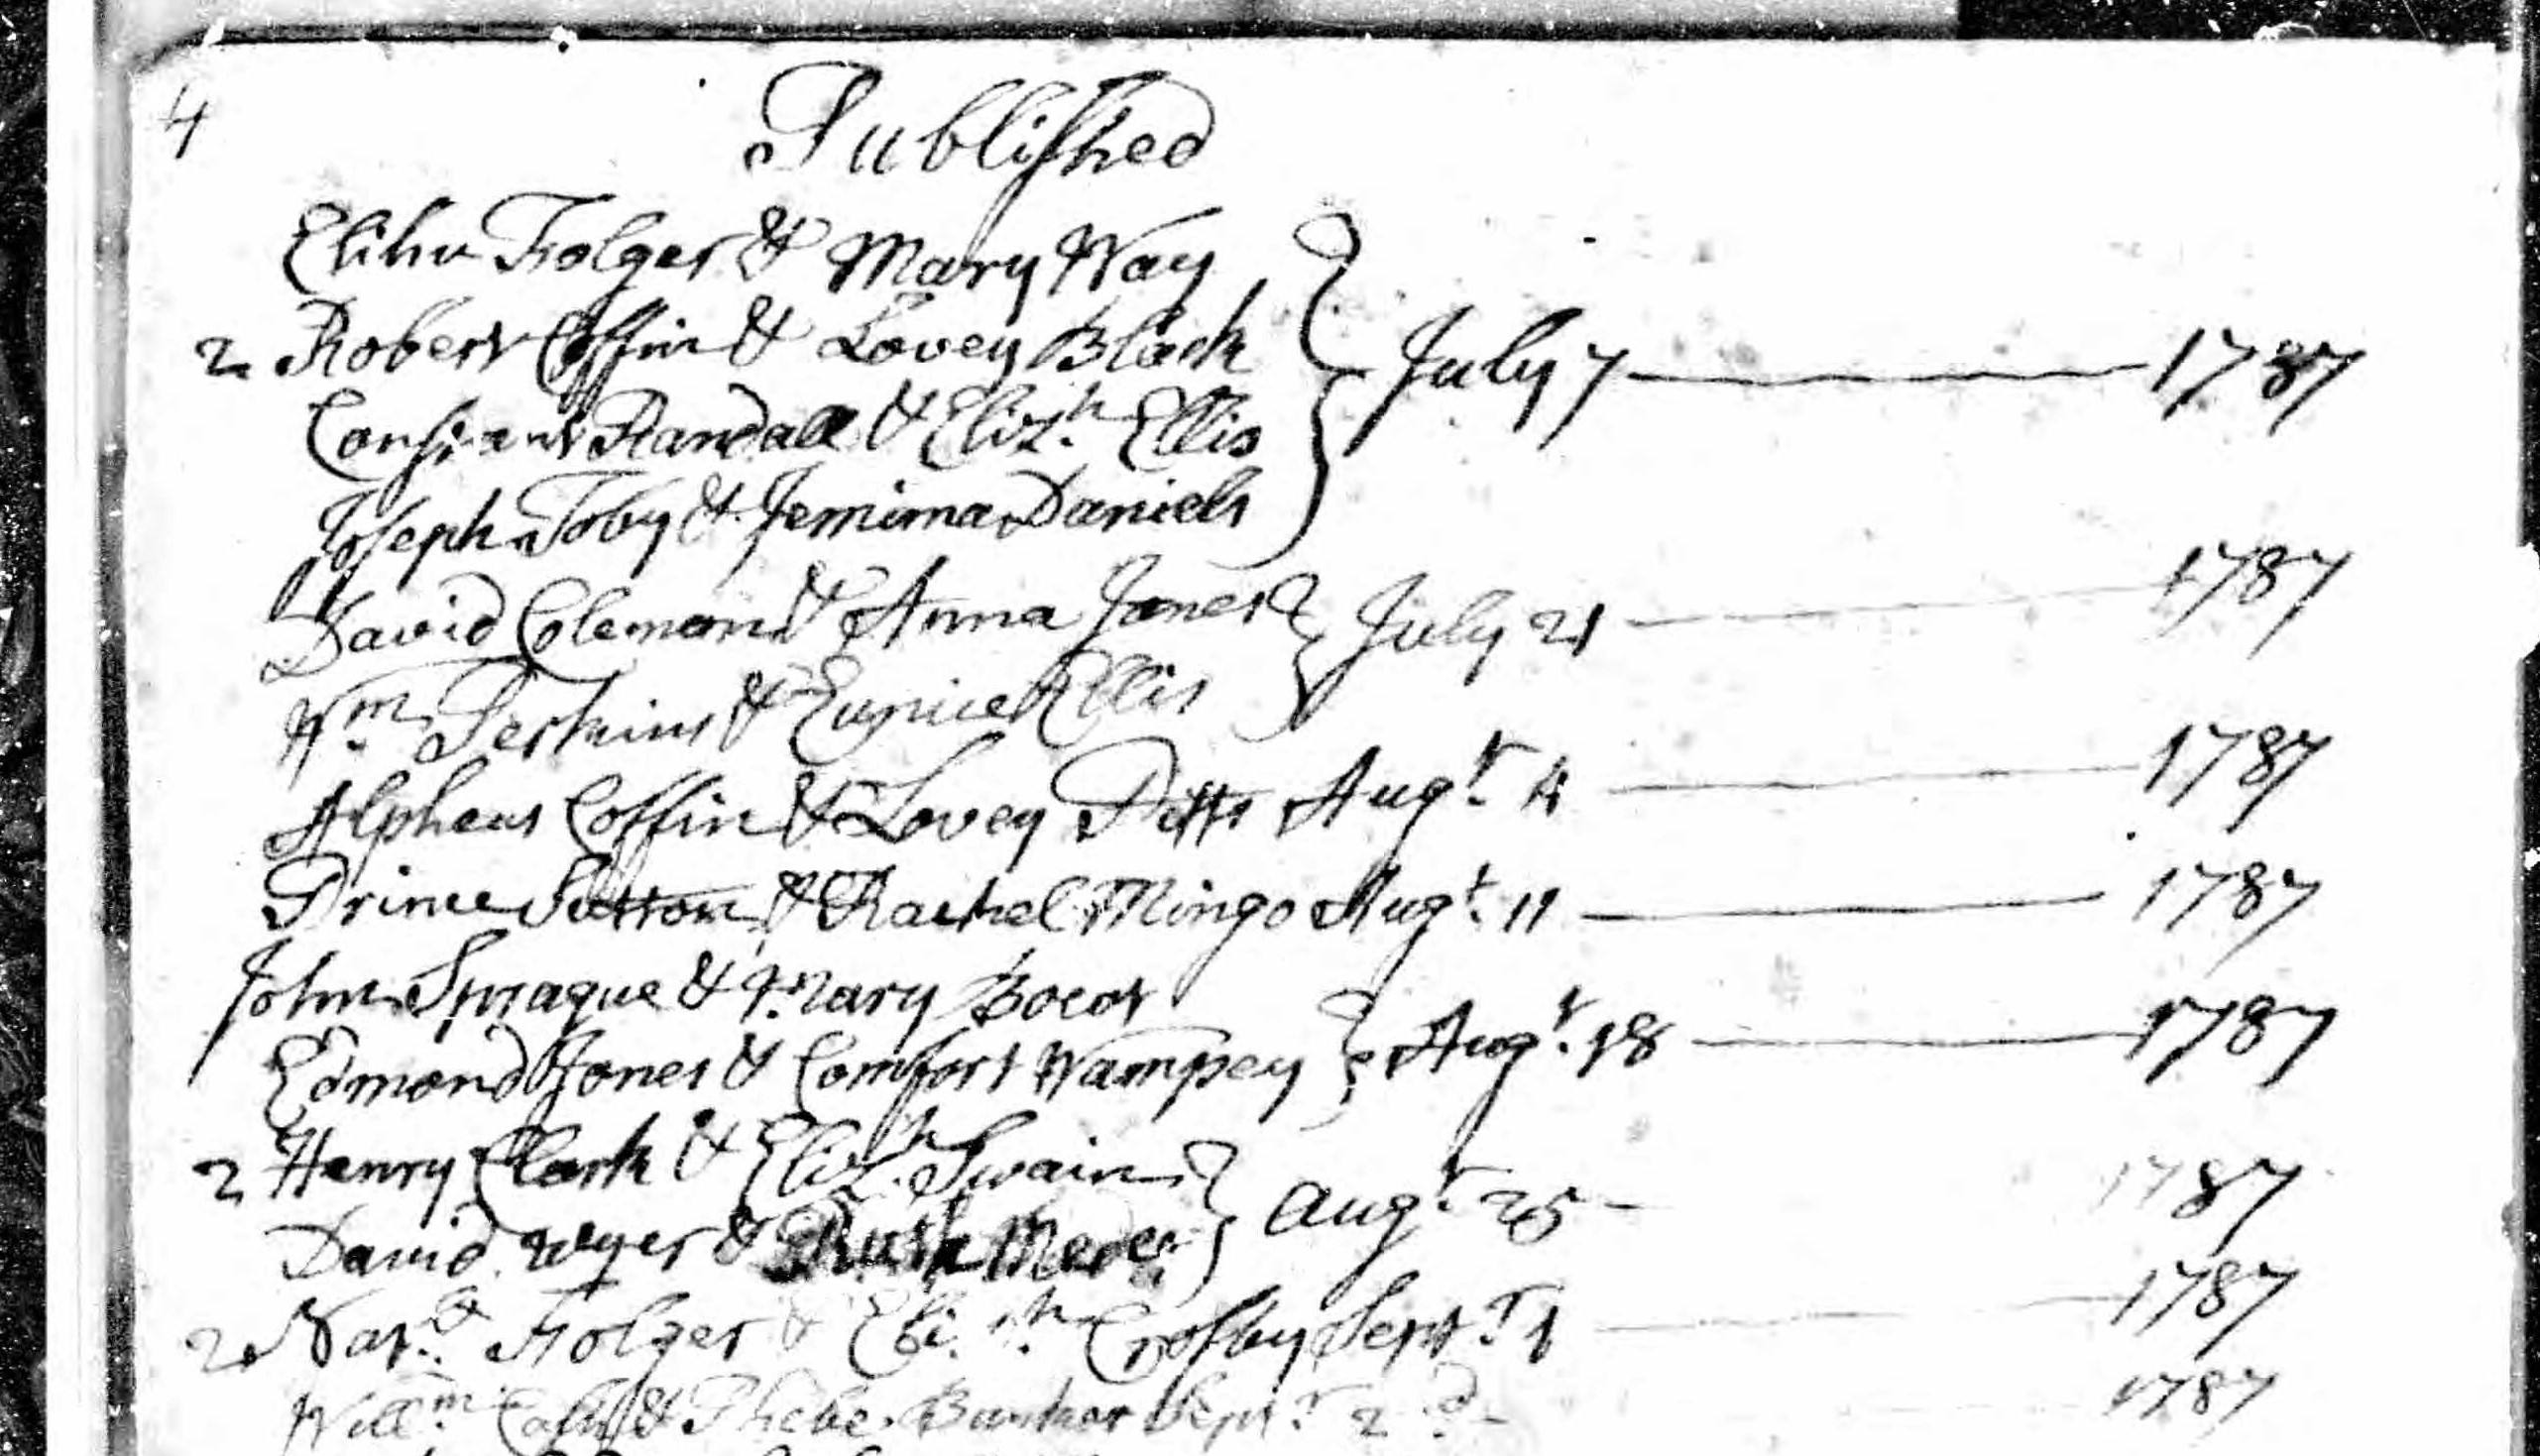 4
Published
Elihu Folger & Mary Way
2 Robert Coffin & Lovey Black
Constant Randall & Eliz.h Ellis } July 7 — 1787
Joseph Toby & Jemima Daniels
David Coleman & Anna Jones } July 21 — 1787
Wm. Perkins & Eunice Ellis
Alpheus Coffin & Lovey Pitts Augt. 4 — 1787
Prince Sutton & Rachel Mingo Augt. 11 — 1787
John Sprague & Mary Bocot
Edmond Jones & Comfort Wampey } Augt. 18 — 1787
2 Henry Clark & Eliz.h Swain } Augt. 25 - 1787
David Wyer & Ruth
2 Folger & Crosby Sept.r 1 — 1787
Will.m & Phebe Bunker Sept.r 2.d - 1787